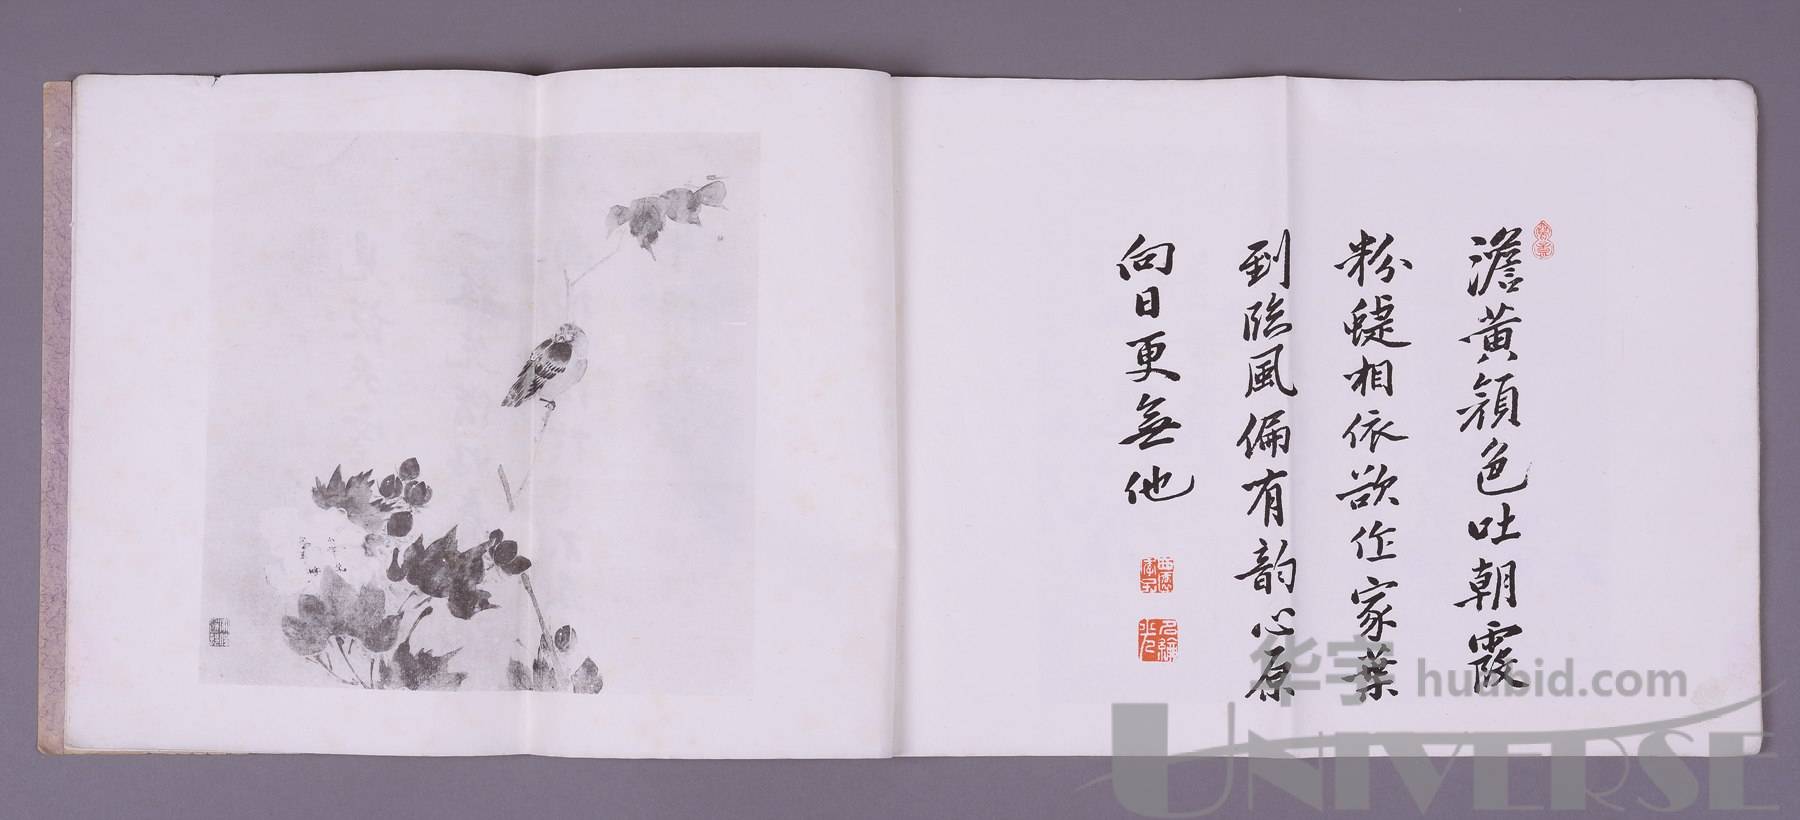 澹黄顔色吐朝霞
粉蜨相依欲作家葉
到臨風偏有韵心原
向日更無他
华宇 huabid.com
UNIVERSE